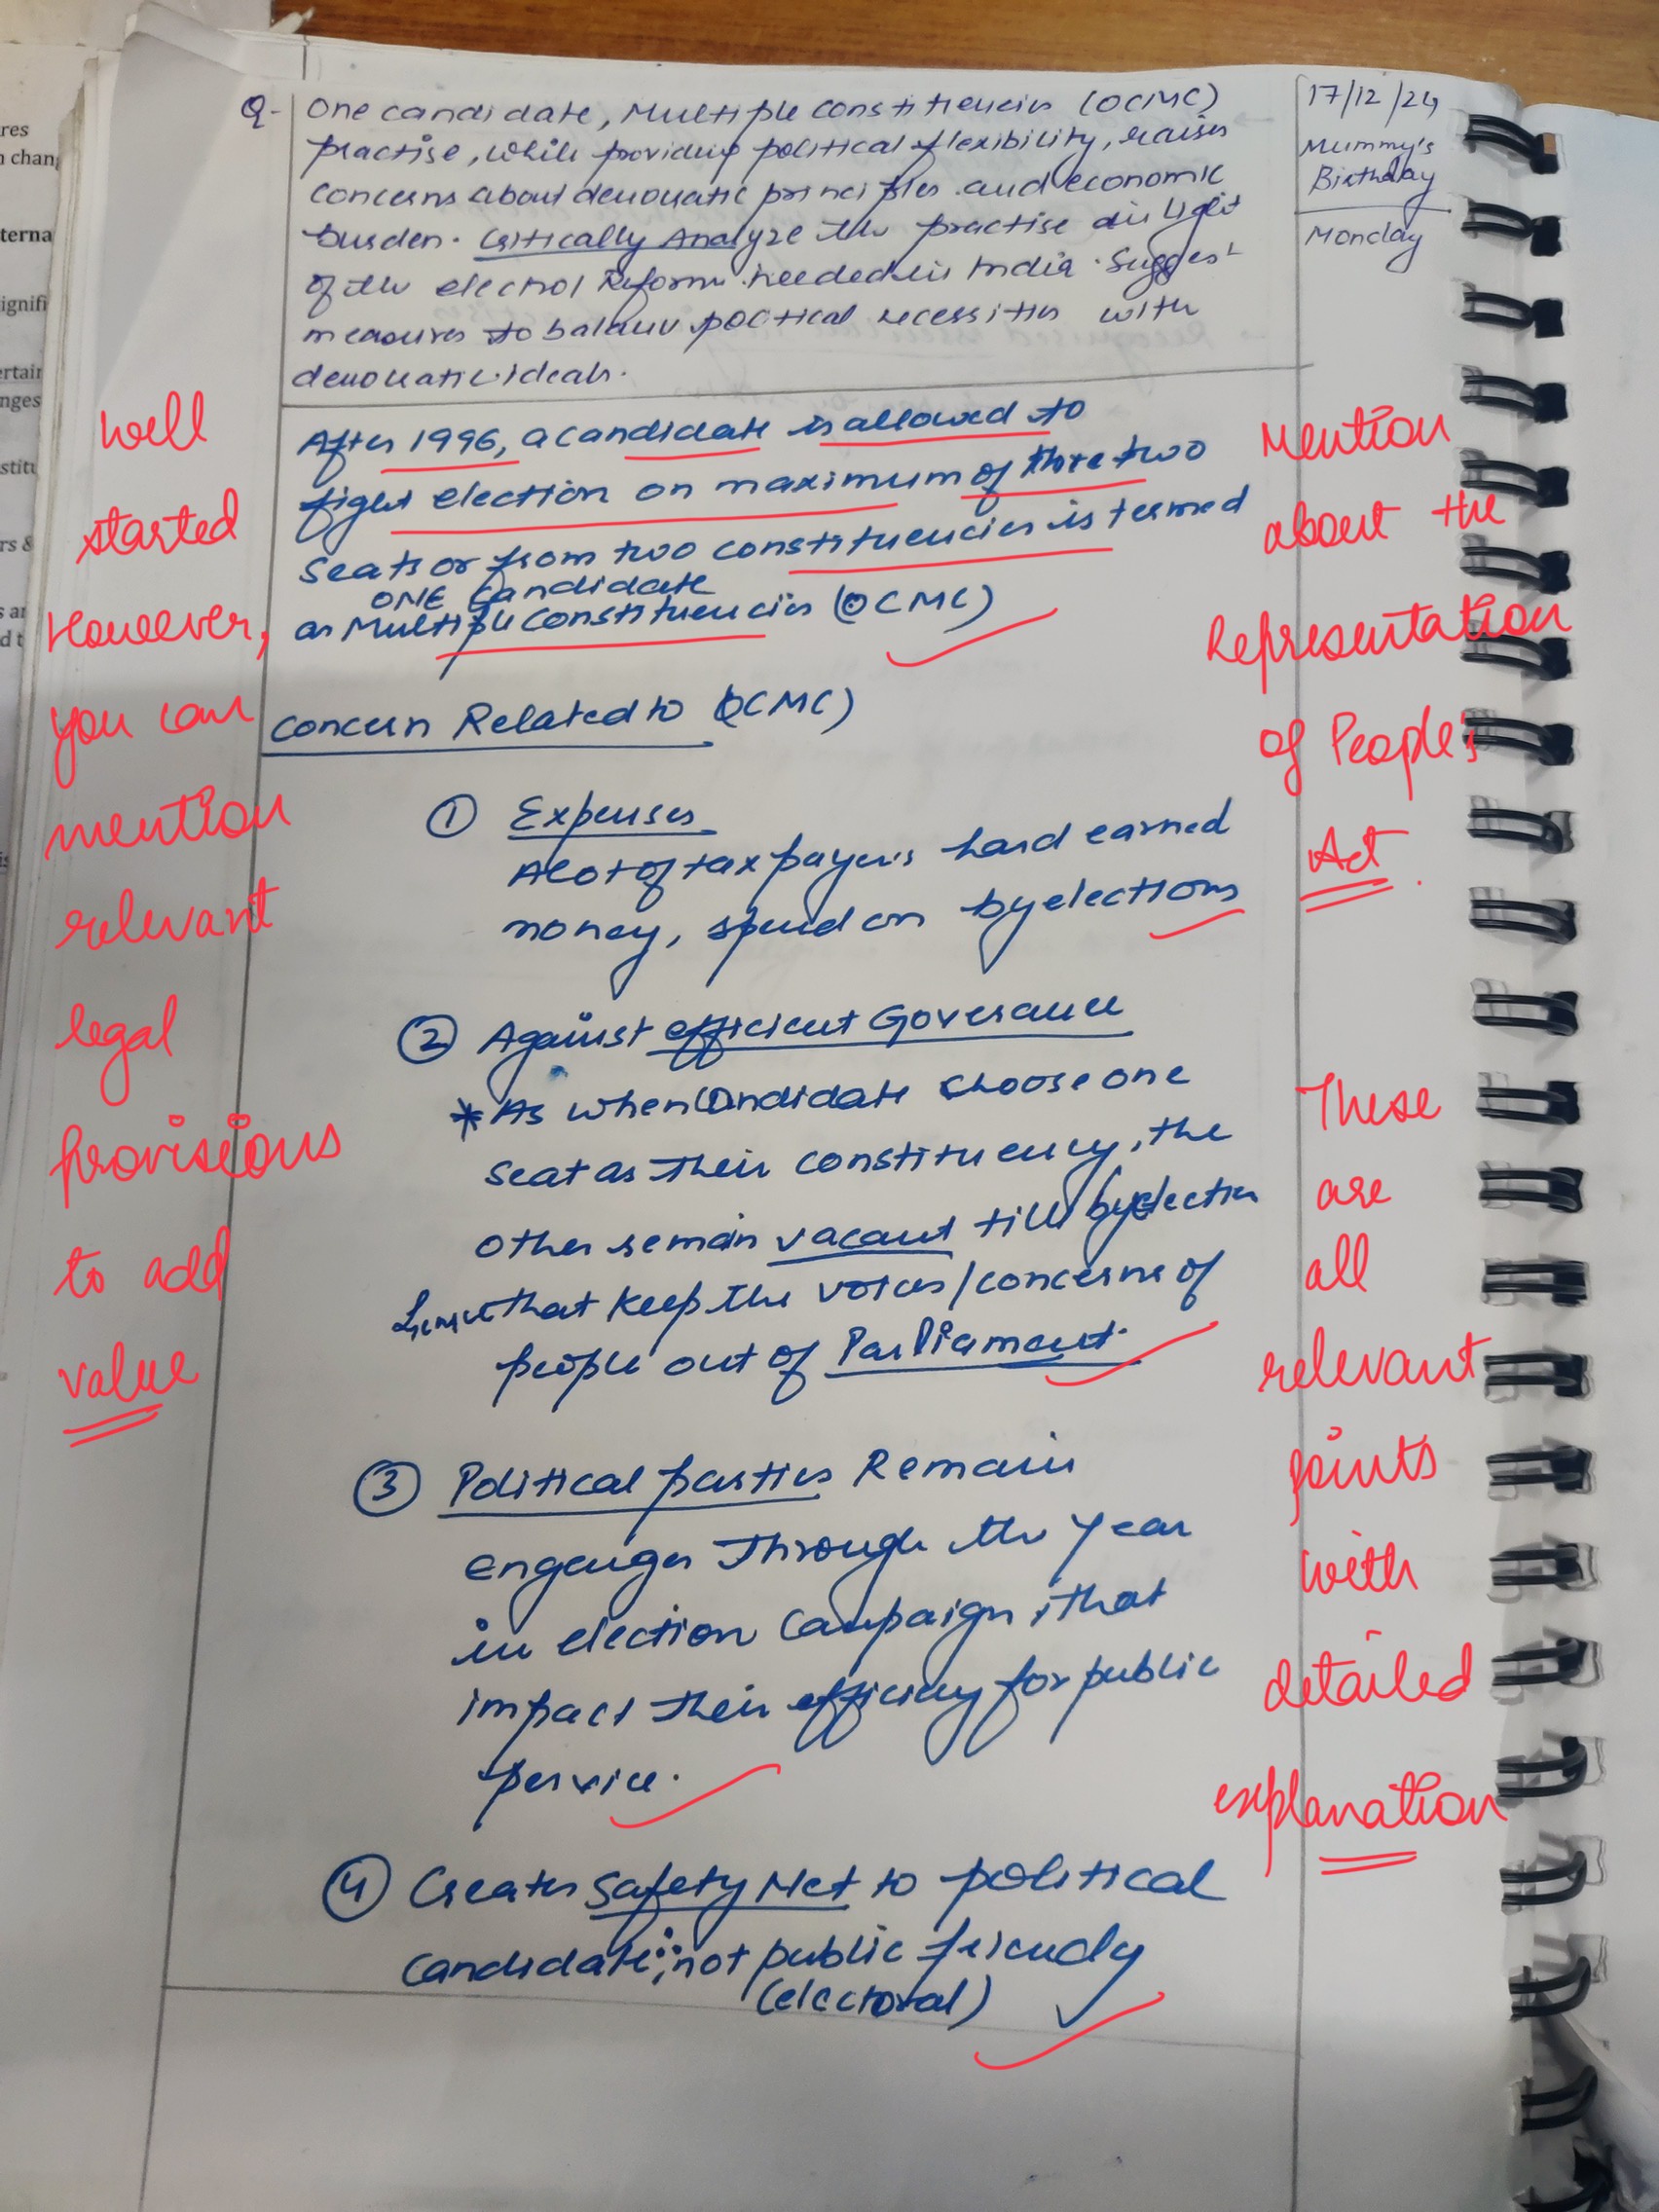 Q- One candidate, Multiple constituencies (OCMC)
practise, while providing political flexibility, raises
concerns about democratic principles and economic
burden. Critically Analyze the practise in light
of the electrol Reforms needed in India. Suggest
measures to balance political necessities with
democratic ideals.
17/12/24
Mummy's
Birthday
Monday
After 1996, a candidate is allowed to
fight election on maximum of two
seats or from two constituencies is termed
ONE Candidate
as Multiple Constituencies (OCMC)
Concern Related to OCMC)
① Expenses
A lot of tax payer's hard earned
money, spend on byelections
② Against efficient Goverance
* As when Candidate choose one
seat as their constituency, the
other remain vacant till byelection
that keep the voices/concerns of
people out of Parliament.
③ Political parties Remain
engages through the year
in election Campaign; that
impact their efficiency for public
service.
④ Creates Safety Net to political
candidate; not public friendly
(electoral)
Well
started
However,
you can
mention
relevant
legal
provisions
to add
value
Mention
about the
Representation
of People's
Act.
These
are
all
relevant
points
with
detailed
explanation
res
n chang
terna
ignifi
ertain
nges
stitu
rs &
s an
d t